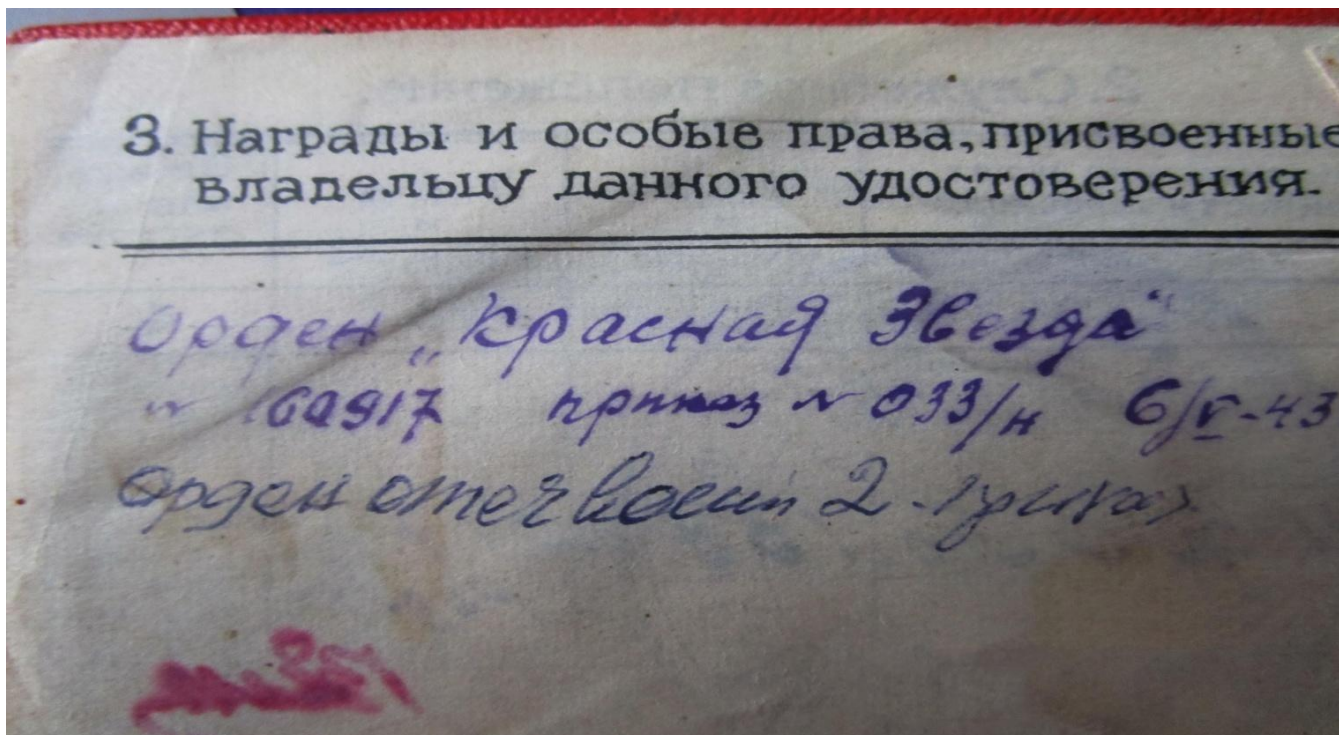 3. Награды и особые права, присвоенные
владельцу данного удостоверения.
Орден „Красная Звезда“
приказ № 033/н 6/V-43
Орден отеч воен 2